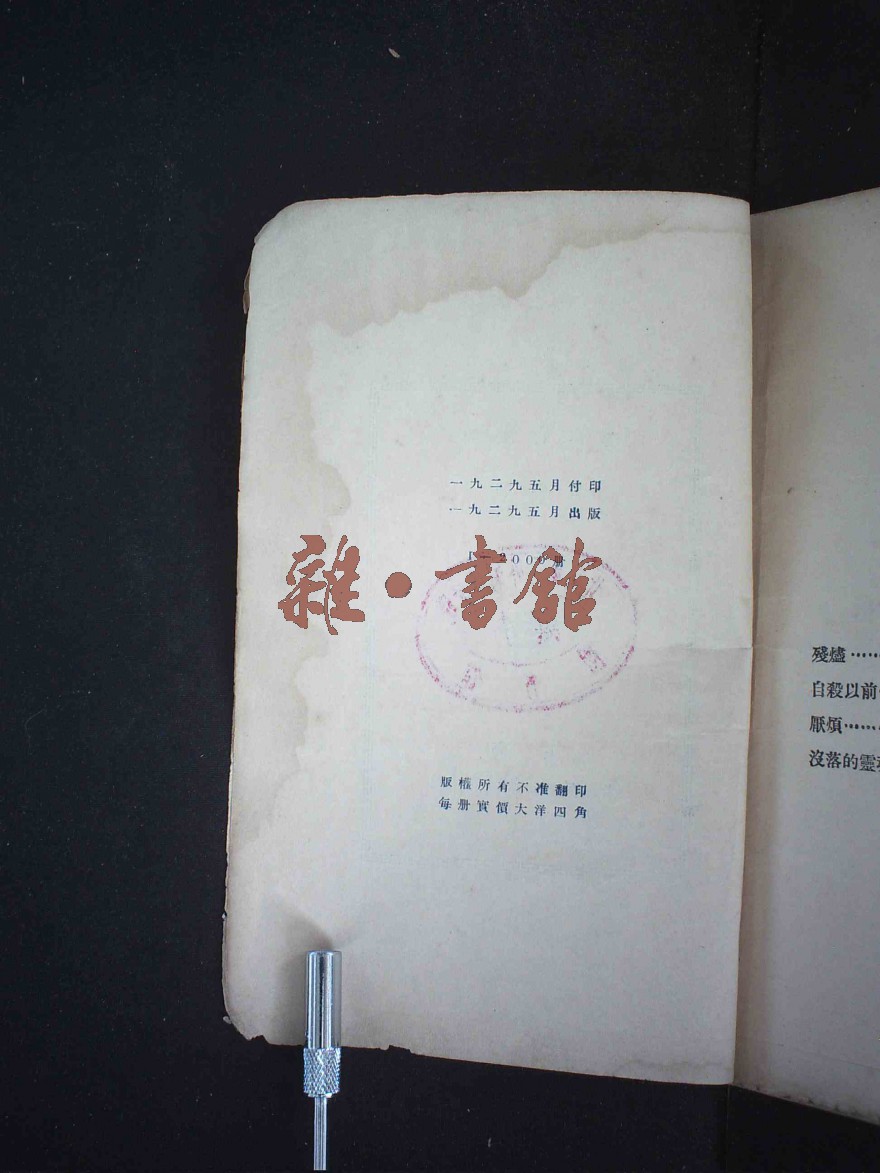 一九二九五月付印
一九二九五月出版
000册
雜·書館
版權所有不准翻印
每册實價大洋四角
殘燼……
自殺以前
厭煩……
沒落的靈